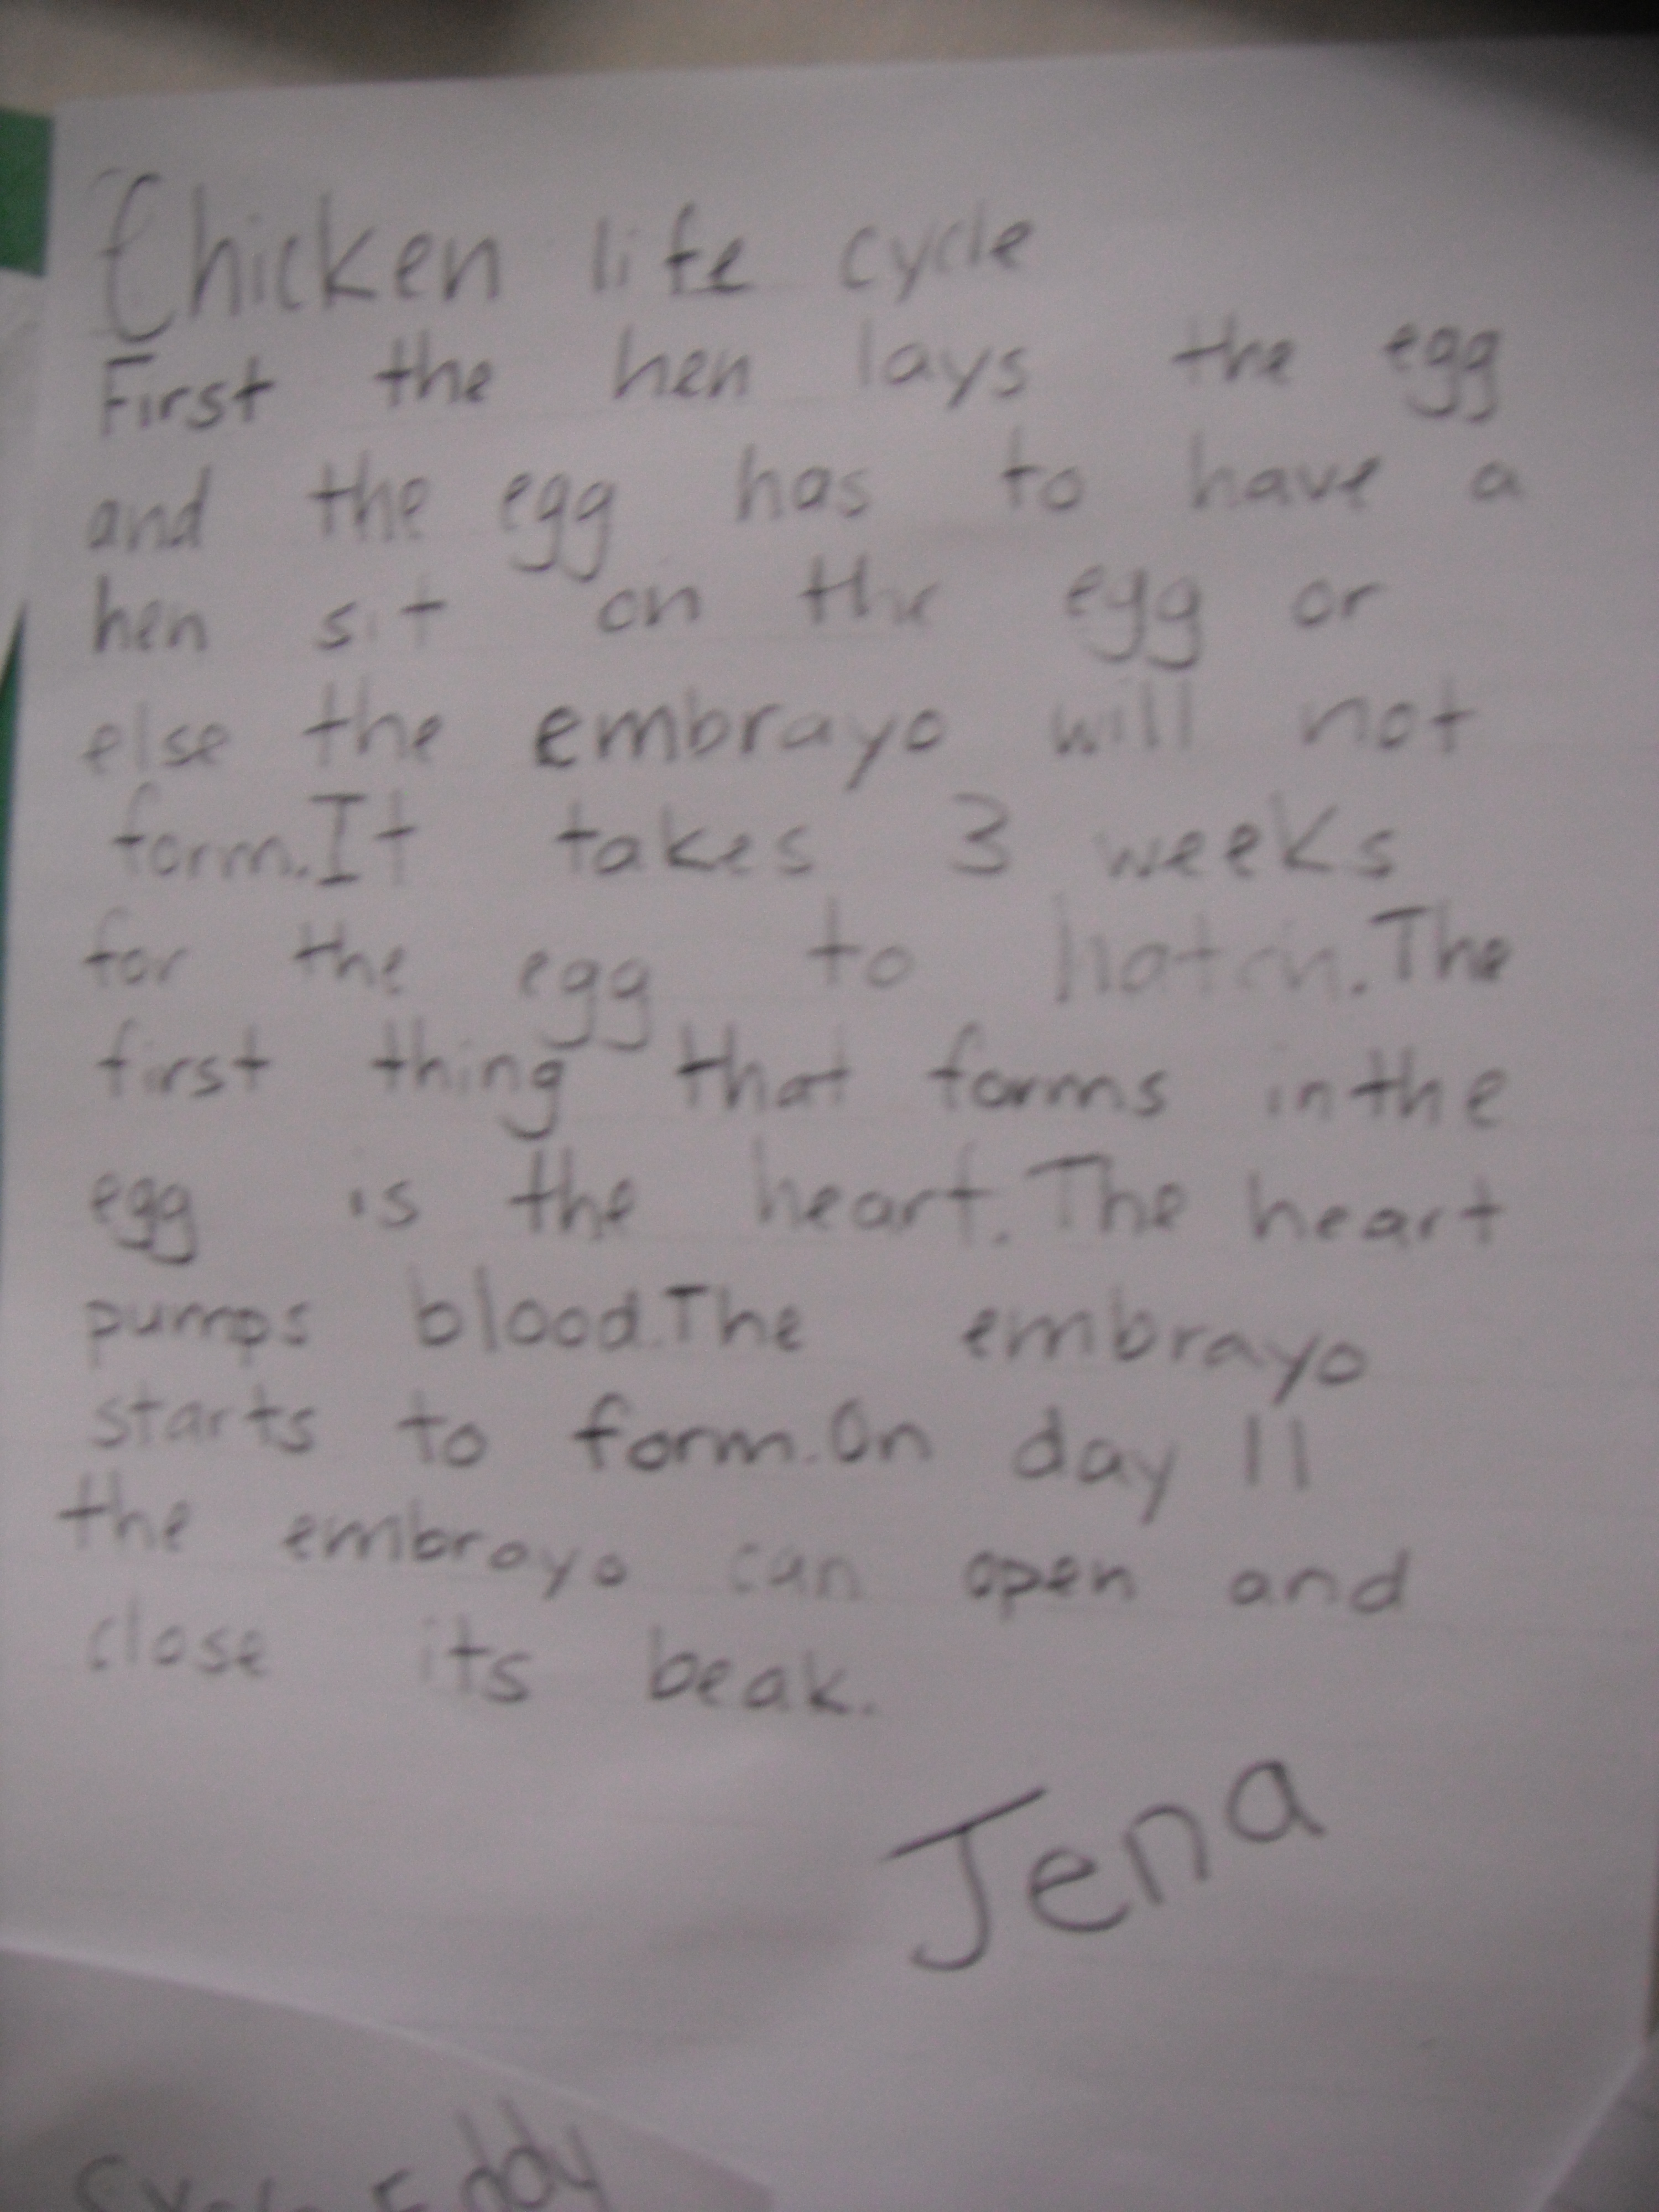 Chicken life cycle
First the hen lays the egg
and the egg has to have a
hen sit on the egg or
else the embrayo will not
form.It takes 3 weeks
for the egg to hatch.The
first thing that forms inthe
egg is the heart.The heart
pumps blood.The embrayo
starts to form.On day 11
the embrayo can open and
close its beak.
Jena
Cycle Eddy